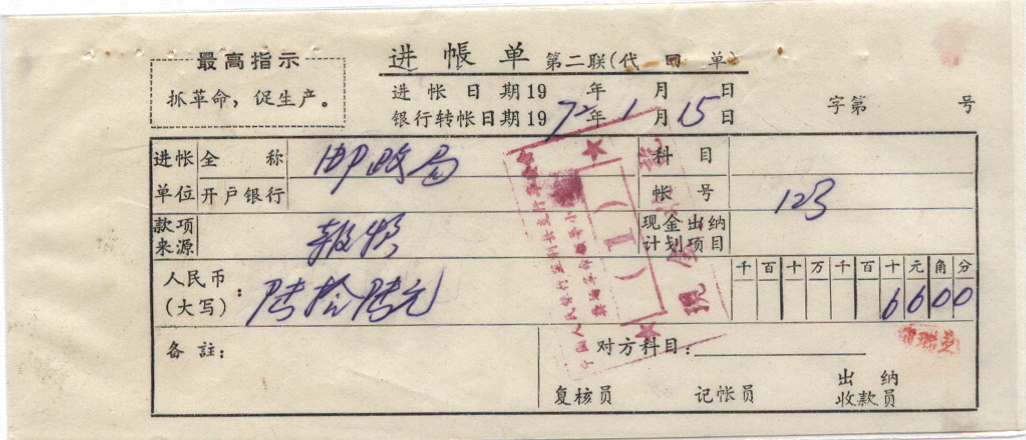 最高指示
抓革命，促生产。
进帐单 第二联(代回单)
进帐日期19 年 月 日
银行转帐日期1972年1月15日
字第 号
进帐单位 全称 邮政局
科目
开户银行
帐号 123
款项来源 报费
现金出纳计划项目
人民币(大写)：陆拾陆元
千百十万千百十元角分
6600
备註：
对方科目：
复核员 记帐员 出纳收款员
(1)
现金